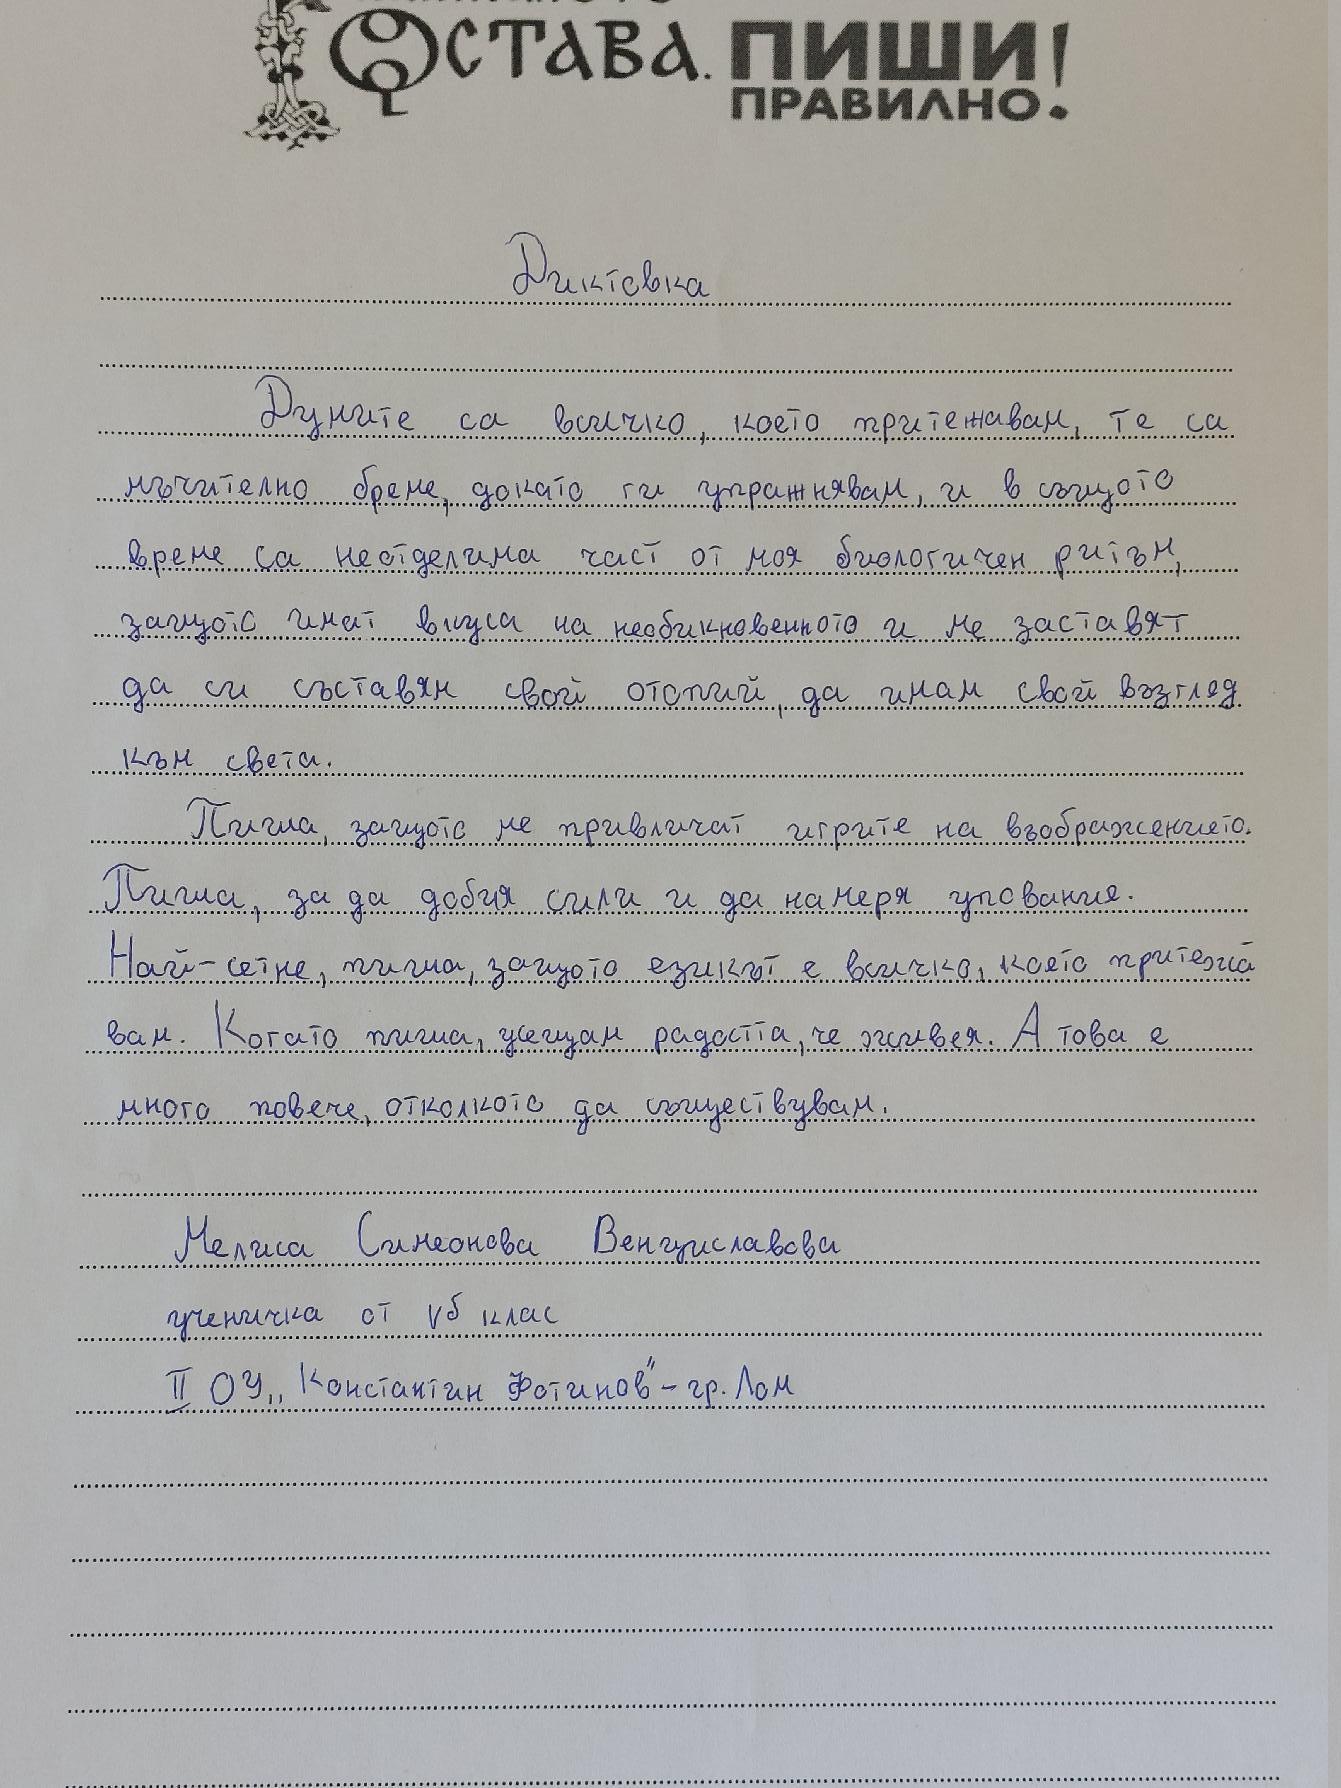 ОСТАВА. ПИШИ
ПРАВИЛНО!
Диктовка
Думите са всичко, което притежавам, те са
мъчително бреме, докато ги упражнявам, и в същото
време са неотделима част от моя биологичен ритъм,
защото имат вкуса на необикновенното и ме заставят
да си съставям свой отстий, да имам свой възглед
към света.
Пиша, защото ме привличат игрите на въображението.
Пиша, за да добия сили и да намеря упование.
Най-сетне, пиша, защото езикът е всичко, което притежа
вам. Когато пиша, усещам радостта, че живея. А това е
много повече, отколкото да съществувам.
Мелиса Симеонова Венциславова
ученичка от Vб клас
II ОУ „Константин Фотинов" - гр. Лом